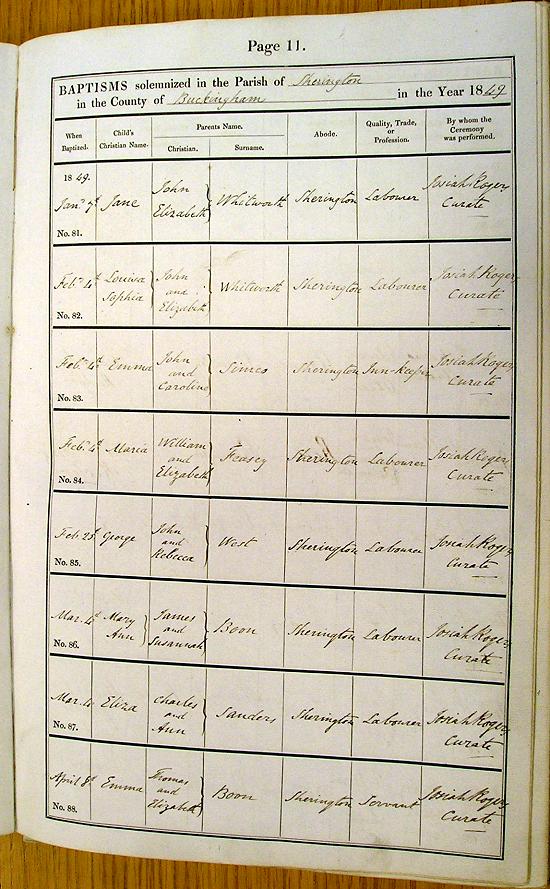 Page 11.
BAPTISMS solemnized in the Parish of Sherington
in the County of Buckingham in the Year 1849
When Baptized. Child's Christian Name. Parents Name. Abode. Quality, Trade, or Profession. By whom the Ceremony was performed.
Christian. Surname.
1849.
Jany 7th Jane John Elizabeth Whitworth Sherington Labourer Josiah Roger Curate
No. 81.
Feb. 4th Louisa Sophia John and Elizabeth Whitworth Sherington Labourer Josiah Roger Curate
No. 82.
Feb. 4th Emma John and Caroline Simco Sherington Inn-keeper Josiah Roger Curate
No. 83.
Feb. 4th Maria William and Elizabeth Feasey Sherington Labourer Josiah Roger Curate
No. 84.
Feb. 25 George John and Rebecca West Sherington Labourer Josiah Roger Curate
No. 85.
Mar. 4th Mary Ann James and Susannah Boon Sherington Labourer Josiah Roger Curate
No. 86.
Mar. 4 Eliza Charles and Ann Sanders Sherington Labourer Josiah Roger Curate
No. 87.
April 8th Emma Thomas and Elizabeth Boon Sherington Servant Josiah Roger Curate
No. 88.